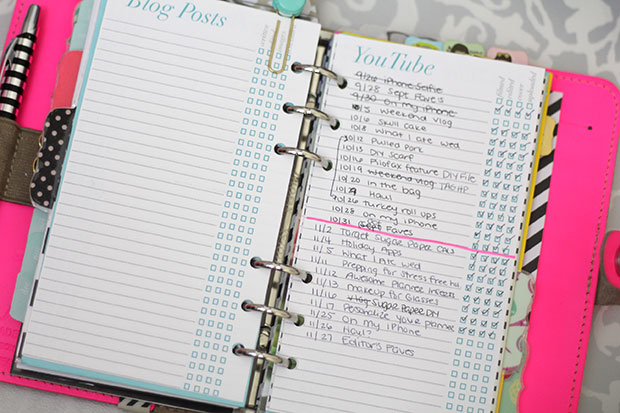 Blog Posts
YouTube
9/26 iPhone Selfie
9/28 Sept Faves
9/30 on my iPhone
10/5 weekend vlog
10/6 skull cake
10/8 what I ate wed
10/12 Pulled Pork
10/13 DIY scarf
10/16 Filofax feature DIY File
10/19 weekend vlog
10/20 in the bag
Haul
10/26 Turkey roll ups
10/28 on my iPhone
10/31 Faves
11/2 Target Sugar Paper
11/4 Holiday Apps
11/5 What I Ate Wed
11/11 Prepping for stress free
11/12 Awesome Planner Inserts
11/13 Makeup for Glasses
11/16 Sugar Paper DIY
11/17 Personalize your planner
11/25 On my iPhone
11/26 Haul?
11/27 Editors Faves